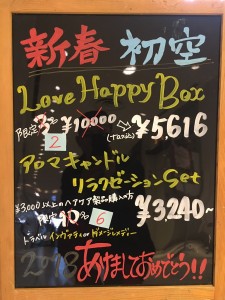 新春 初空
Love Happy Box
限定 2 ¥10000 (tax込) ¥5616
アロマキャンドル
リラクゼーションSet
¥3,000以上のヘアケア製品購入の方
限定 6 ¥3240~
トラベル インヴァティ or ダメージレメディー
2018 あけましておめでとう!!